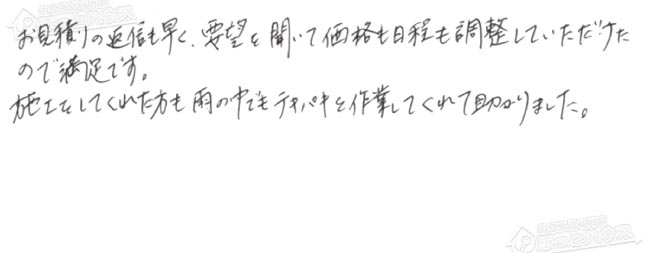 お見積りの返信も早く、要望を聞いて価格も日程も調整していただけた
ので満足です。
施工をしてくれた方も雨の中でもテキパキと作業してくれて助かりました。